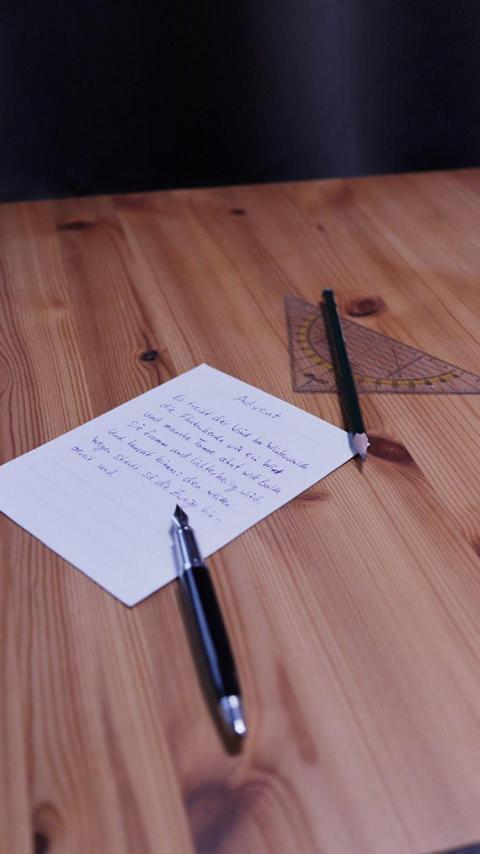 Advent
Es treibt der Wind im Winterwalde
die Flockenherde wie ein Hirt
und manche Tanne ahnt wie balde
sie fromm und lichterheilig wird.
Und lauscht hinaus: den weißen
wegen streckt sie die Zweige hin -
bereit und